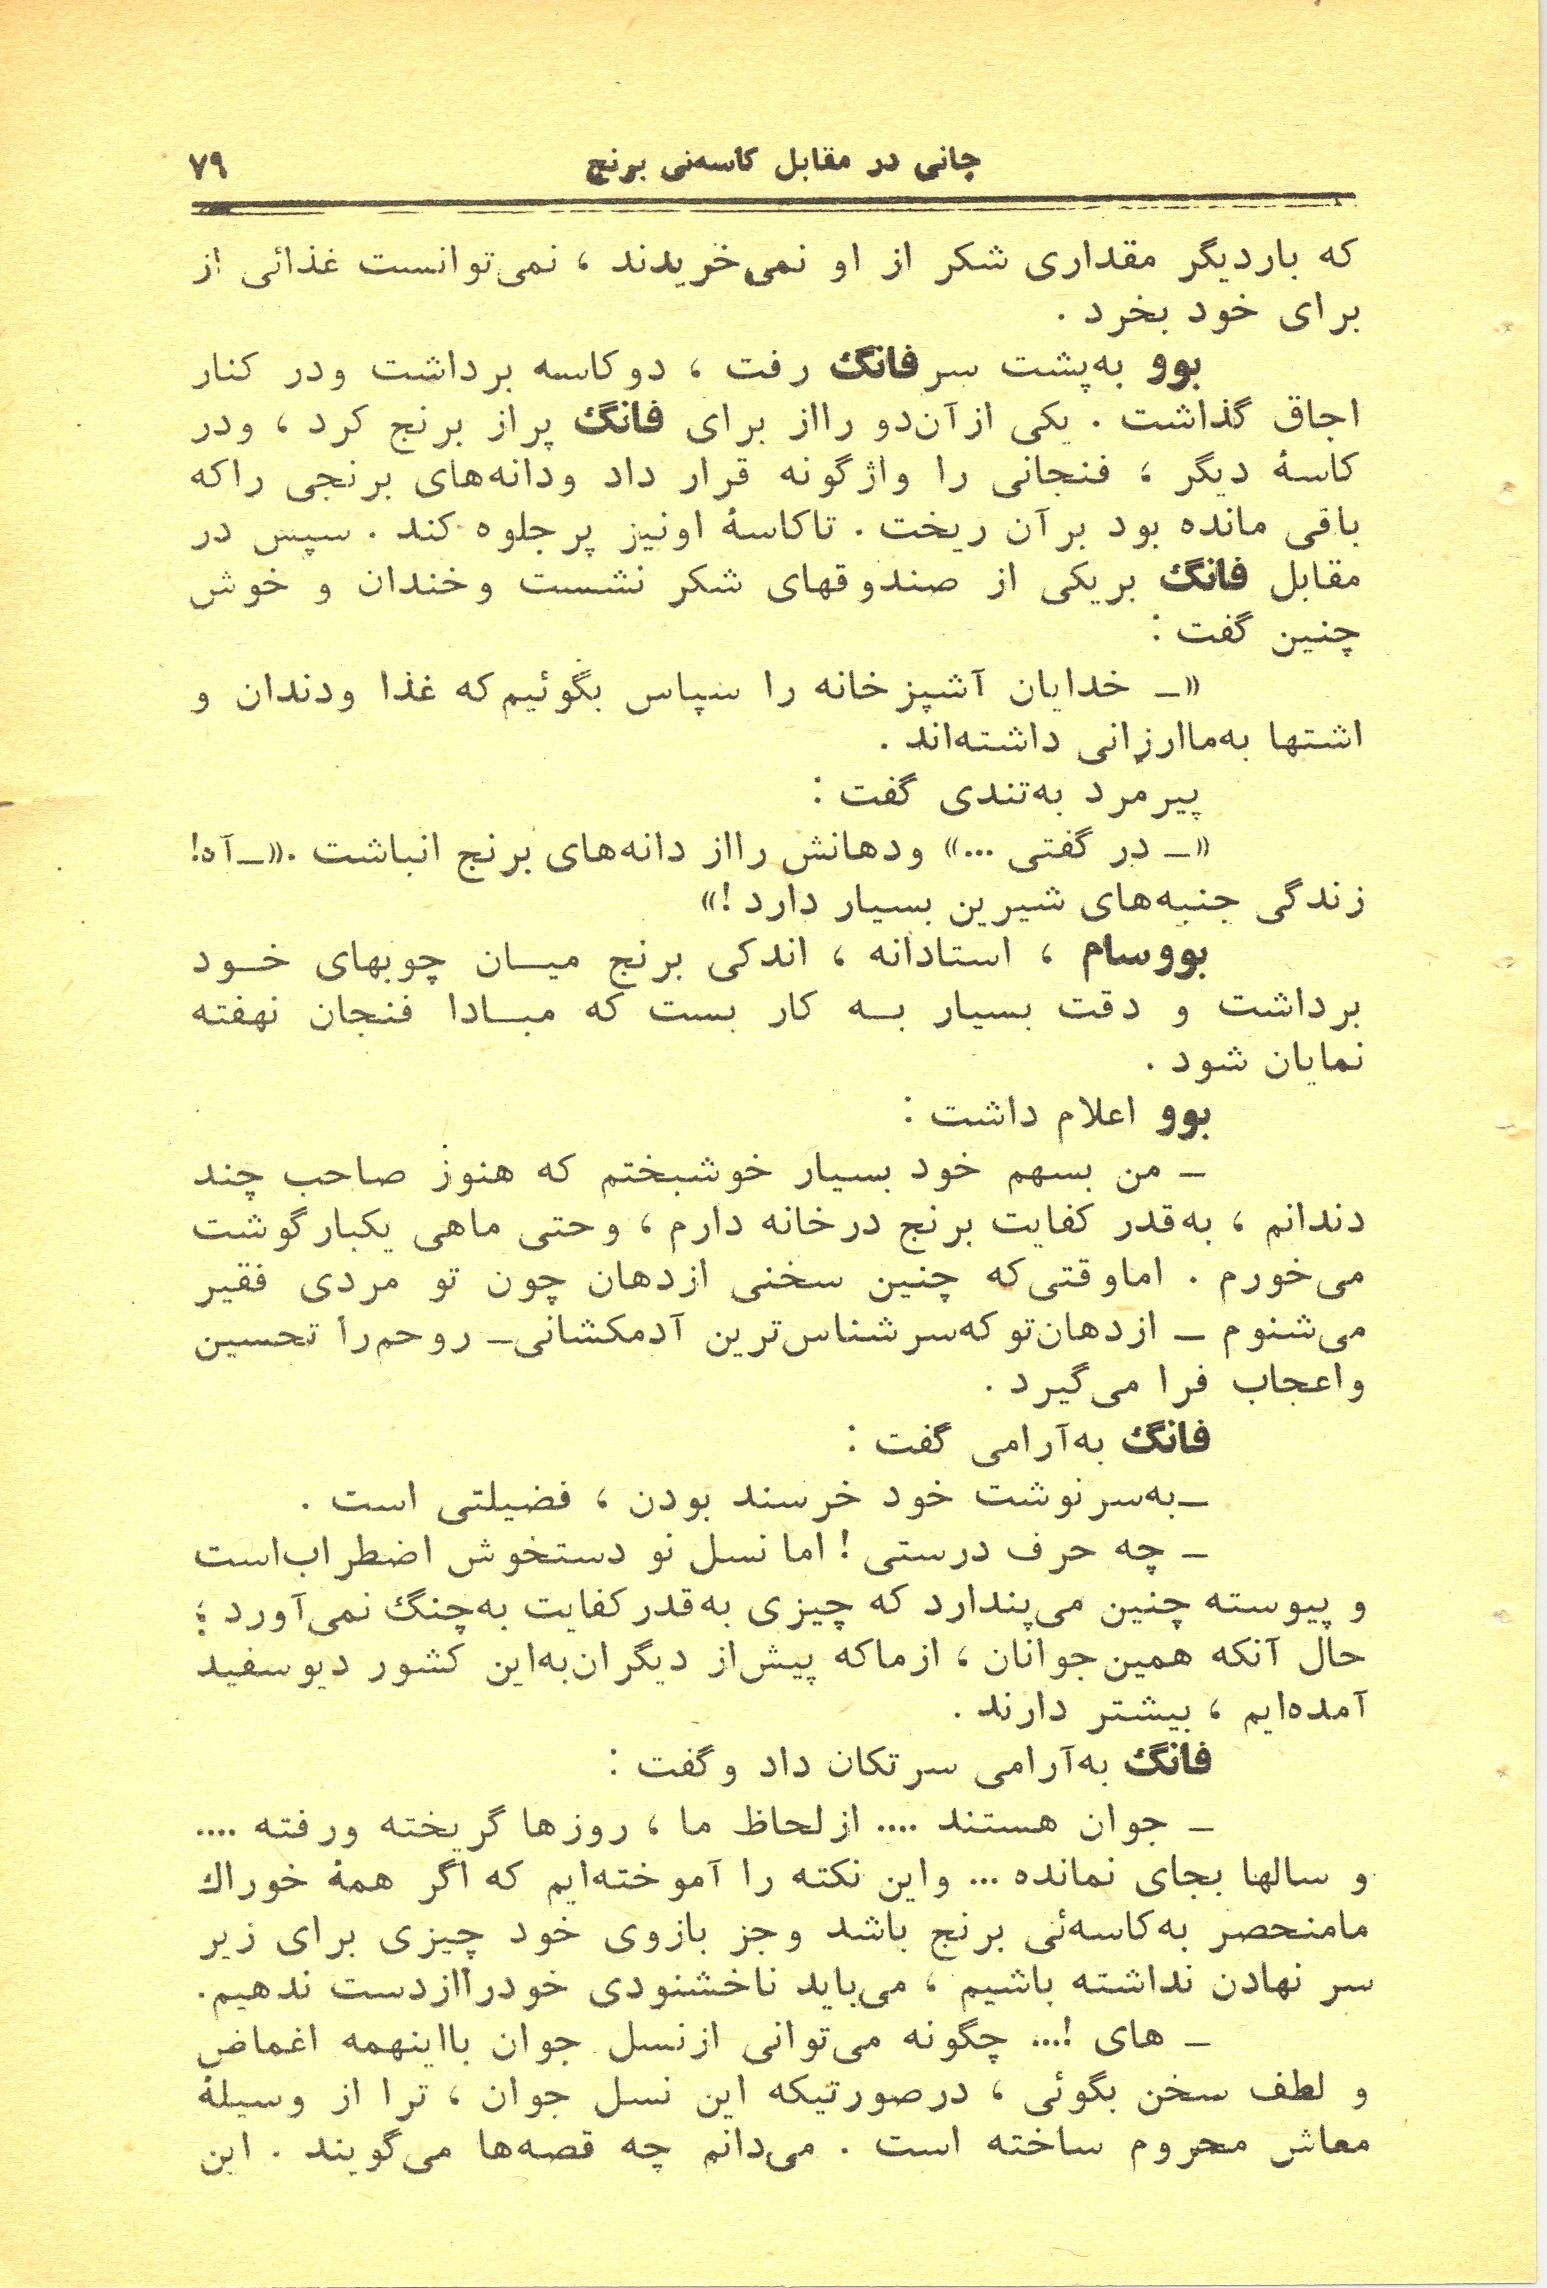 جانی در مقابل کاسه‌ئی برنج ۷۹
که باردیگر مقداری شکر از او نمی‌خریدند ، نمی‌توانست غذائی از
برای خود بخرد .
بوو به‌پشت سر فانگ رفت ، دوکاسه برداشت ودر کنار
اجاق گذاشت . یکی ازآن‌دو رااز برای فانگ پراز برنج کرد ، ودر
کاسهٔ دیگر ، فنجانی را واژگونه قرار داد ودانه‌های برنجی راکه
باقی مانده بود برآن ریخت . تاکاسهٔ اونیز پرجلوه کند . سپس در
مقابل فانگ بریکی از صندوقهای شکر نشست وخندان و خوش
چنین گفت :
«ـ خدایان آشپزخانه را سپاس بگوئیم‌که غذا ودندان و
اشتها به‌ماارزانی داشته‌اند .
پیرمرد به‌تندی گفت :
«ـ در گفتی ...» ودهانش رااز دانه‌های برنج انباشت .«ـ آه!
زندگی جنبه‌های شیرین بسیار دارد !»
بووسام ، استادانه ، اندکی برنج میـان چوبهای خـود
برداشت و دقت بسیار بـه کار بست که مبـادا فنجان نهفته
نمایان شود .
بوو اعلام داشت :
ـ من بسهم خود بسیار خوشبختم که هنوز صاحب چند
دندانم ، به‌قدر کفایت برنج درخانه دارم ، وحتی ماهی یکبارگوشت
می‌خورم . اماوقتی‌که چنین سخنی ازدهان چون تو مردی فقیر
می‌شنوم ـ ازدهان‌تو که‌سرشناس‌ترین آدمکشانی‌ـ روحم‌را تحسین
واعجاب فرا می‌گیرد .
فانگ به‌آرامی گفت :
ـ به‌سرنوشت خود خرسند بودن ، فضیلتی است .
ـ چه حرف درستی ! اما نسل نو دستخوش اضطراب‌است
و پیوسته چنین می‌پندارد که چیزی به‌قدرکفایت به‌چنگ نمی‌آورد ؛
حال آنکه همین‌جوانان ، ازماکه پیش‌از دیگران‌به‌این کشور دیوسفید
آمده‌ایم ، بیشتر دارند .
فانگ به‌آرامی سرتکان داد وگفت :
ـ جوان هستند .... ازلحاظ ما ، روزها گریخته ورفته ....
و سالها بجای نمانده ... واین نکته را آموخته‌ایم که اگر همهٔ خوراك
مامنحصر به‌کاسه‌ئی برنج باشد وجز بازوی خود چیزی برای زیر
سر نهادن نداشته باشیم ، می‌باید ناخشنودی خودراازدست ندهیم.
ـ های !... چگونه می‌توانی ازنسل جوان بااینهمه اغماض
و لطف سخن بگوئی ، درصورتیکه این نسل جوان ، ترا از وسیلهٔ
معاش محروم ساخته است . می‌دانم چه قصه‌ها می‌گویند . این